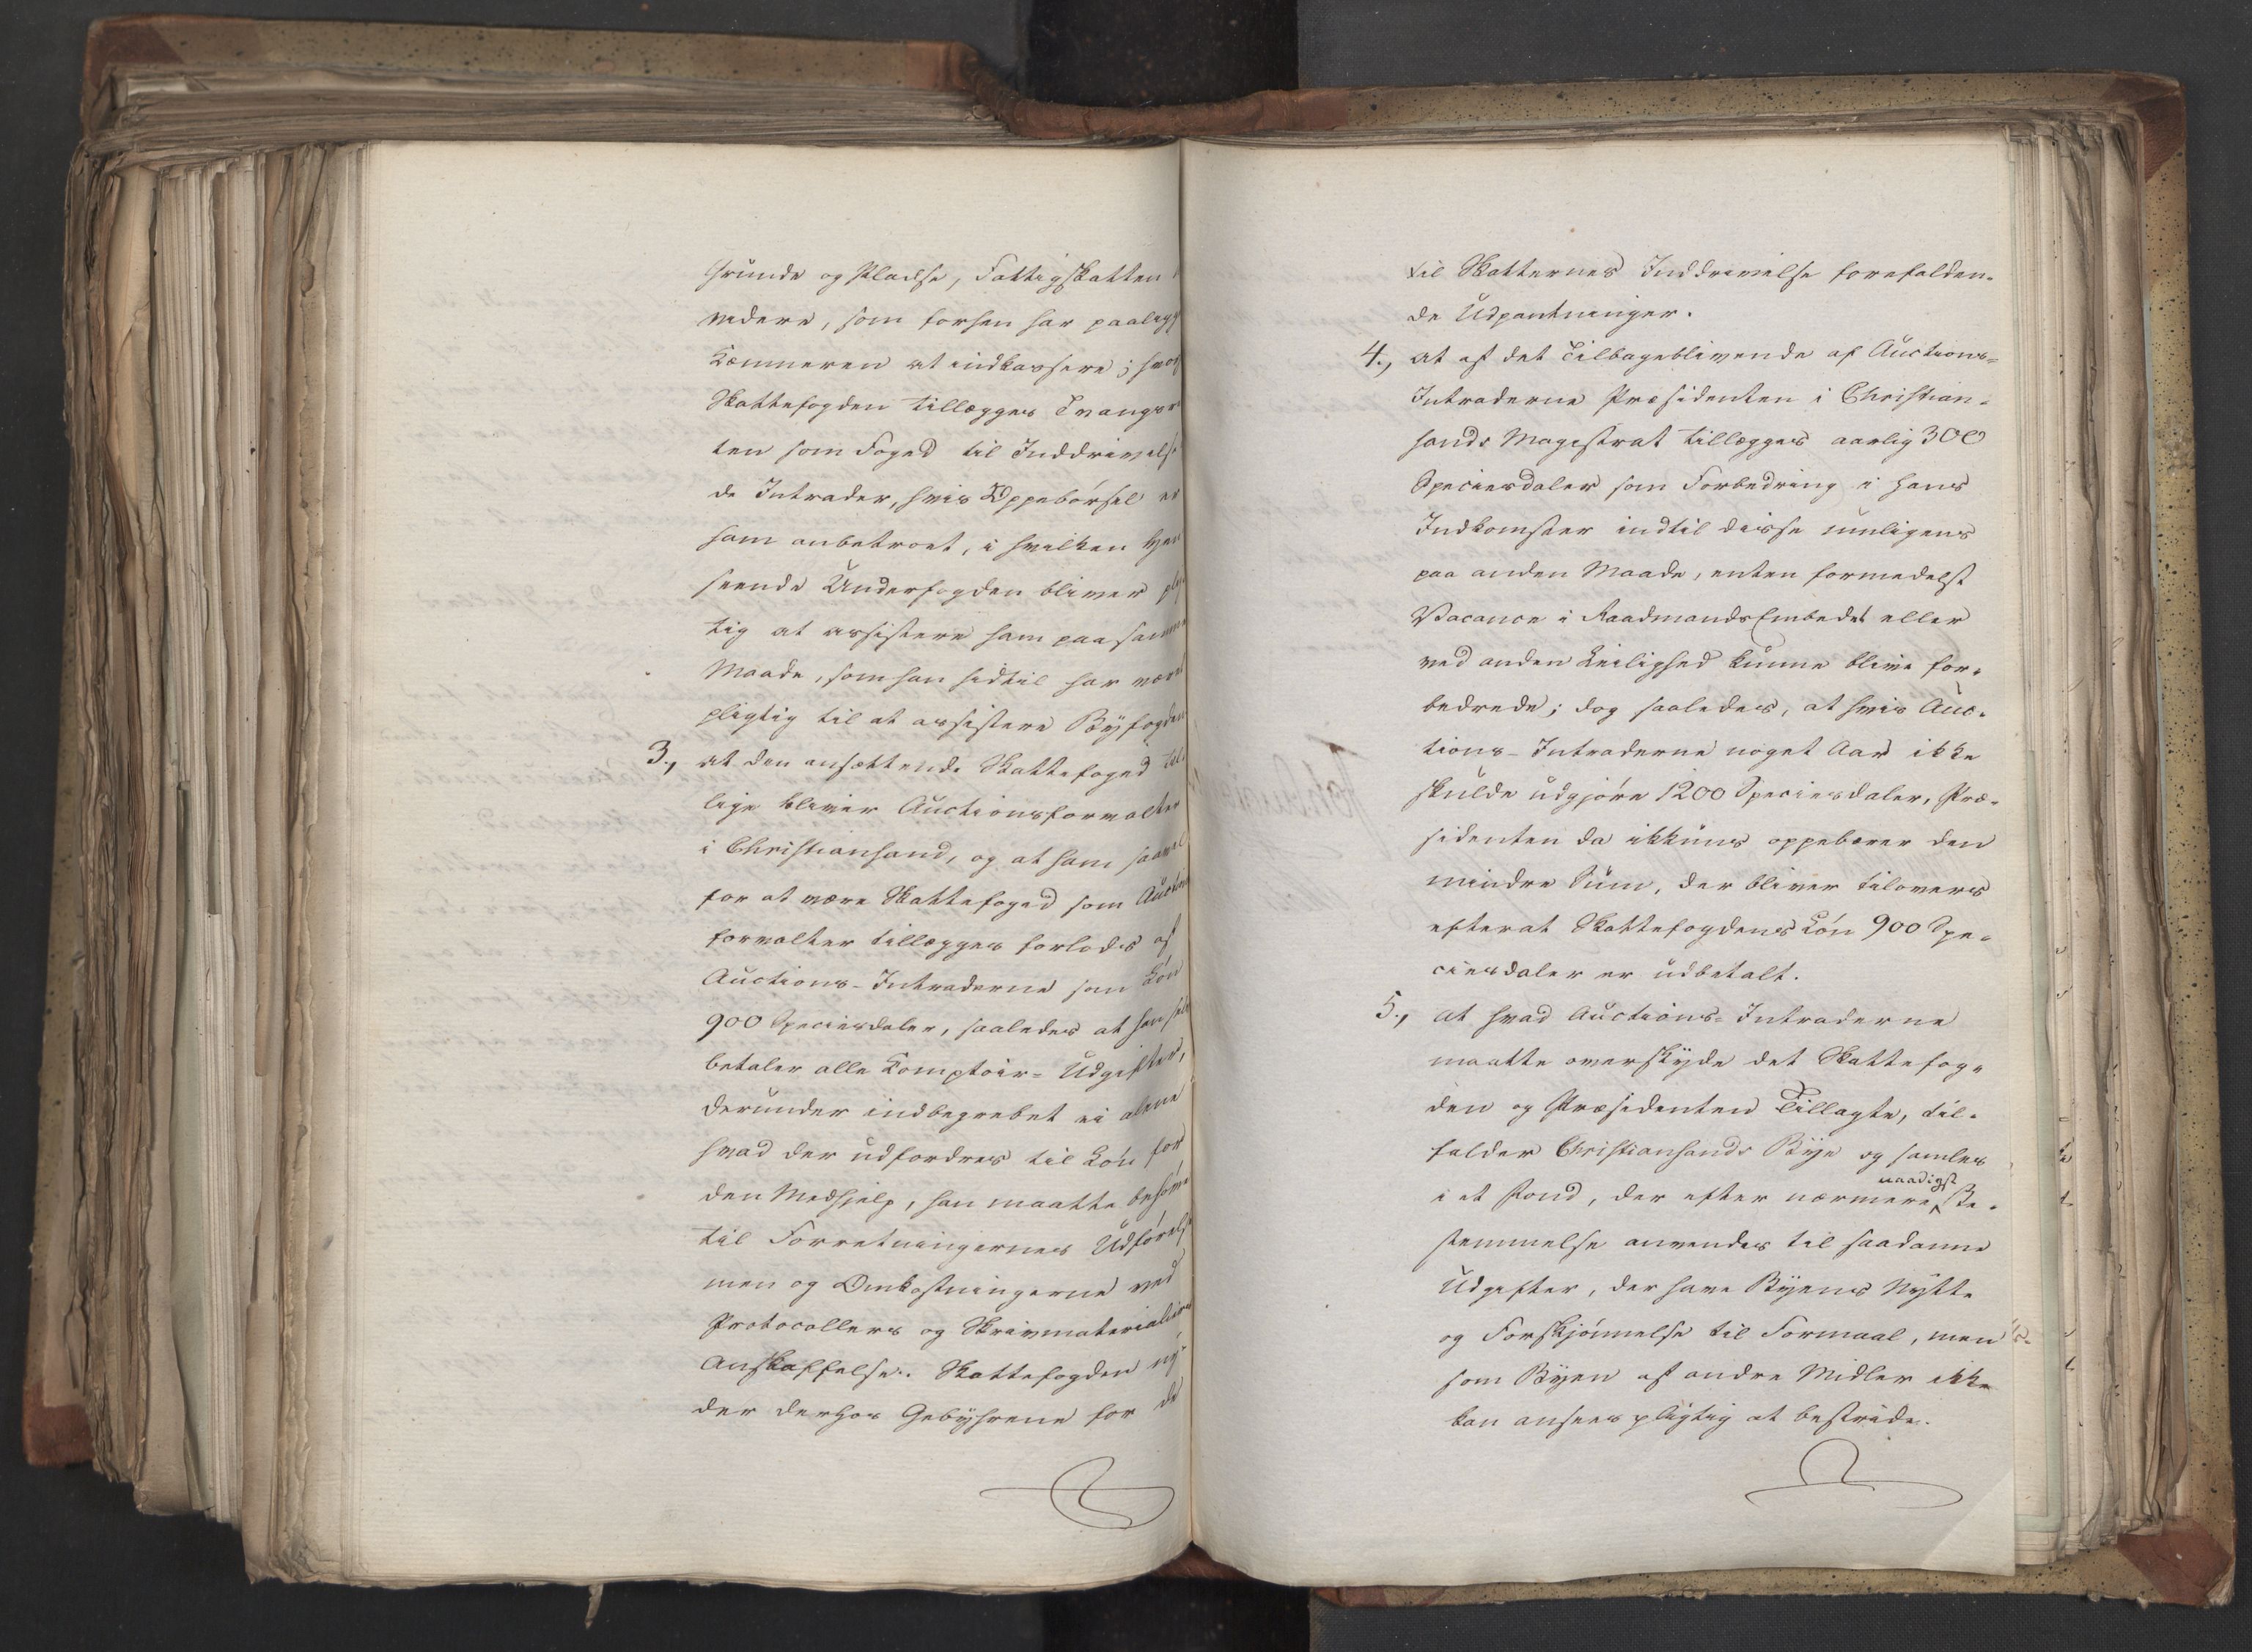 Grunde og Pladse, Fattigskatten
videre, som forhen har paalig
Kæmneren at indkassere; 
Skattefogden tillægges Tvangsre
ten som Foged til Inddrivelse
de Intrader, hvis Oppebörsel er
ham anbetroet, i hvilken Hen
seende Underfogden bliver plig
tig at assistere ham paa samme
Maade, som han hidtil har været
pligtig til at assistere Byfogden
3., at den ansættende Skattefoged til
lige bliver Auctionsforvalter
i Christiansand, og at ham saavel
for at være Skattefoged som Auctions
forvalter tillægges forlods af
Auctions-Intraderne som Lön
900 Speciesdaler, saaledes at han selv
betaler alle Komptoir-Udgifter,
derunder indbegrebet ei alene
hvad der udfordres til Lön for
den Medhjelp, han maatte behöve
til Forretningernes Udförelse
men og Omkostningerne ved
Protocollers og Skrivematerialiers
Anskaffelse. Skattefogden ny-
der derhos Gebyhrene for de
til Skatternes Inddrivelse forefalden-
de Udpantninger.
4., at af det Tilbageblivende af Auctions-
Intraderne Præsidenten i Christian-
sands Magistrat tillægges aarlig 300
Speciesdaler som Forbedring i hans
Indkomster indtil disse muligens
paa anden Maade, enten formedelst
Vacance i Raadmands Embedet eller
ved anden Leilighed kunne blive for-
bedrede; dog saaledes, at hvis Auc-
tions-Intraderne noget Aar ikke
skulde udgjöre 1200 Speciesdaler, Præ-
sidenten da ikkuns oppebærer den
mindre Sum, der bliver tilovers
efterat Skattefogdens Lön 900 Spe-
ciesdaler er udbetalt.
5., at hvad Auctions-Intraderne
maatte overskyde det Skattefog-
den og Præsidenten Tillagte, til-
falder Christiansands Bye og samles
i et Fond, der efter nærmere naadigst Be-
stemmelse anvendes til saadanne
Udgifter, der have Byens Nytte
og Forskjönnelse til Formaal, men
som Byen af andre Midler ikke
kan ansees pligtig at bestride.